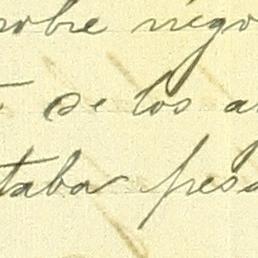 sobre nego
de los a
taba pesa